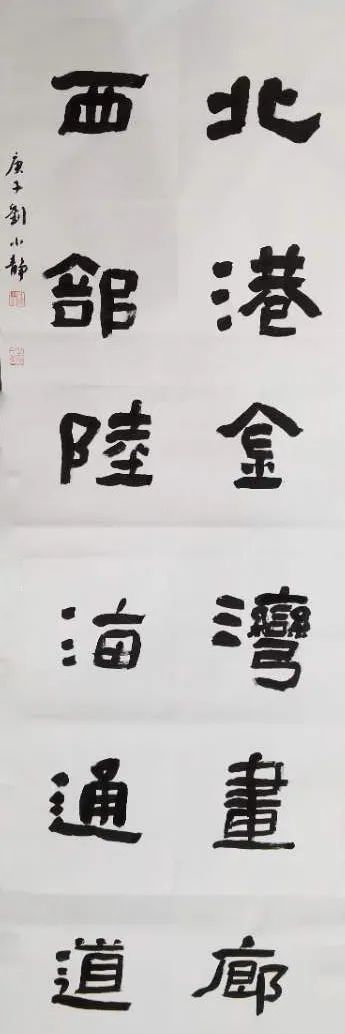 北港金灣畫廊
西部陸海通道
庚子劉小靜